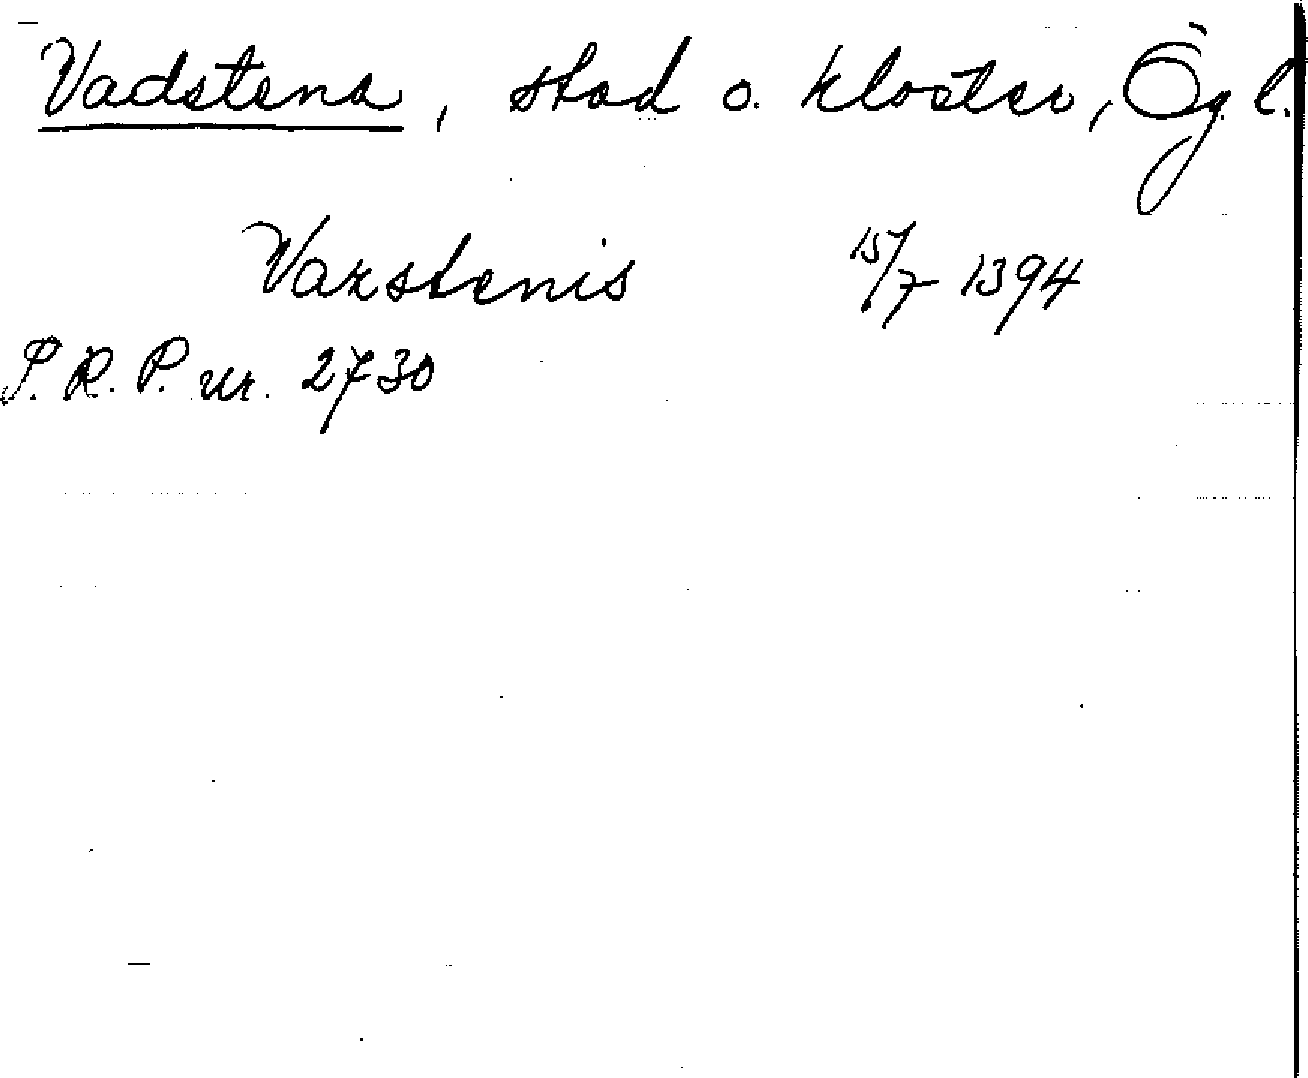 Vadstena, stad o. kloster, Ög. l.
Varstenis 15/7 1394
S.R.P. nr. 2730